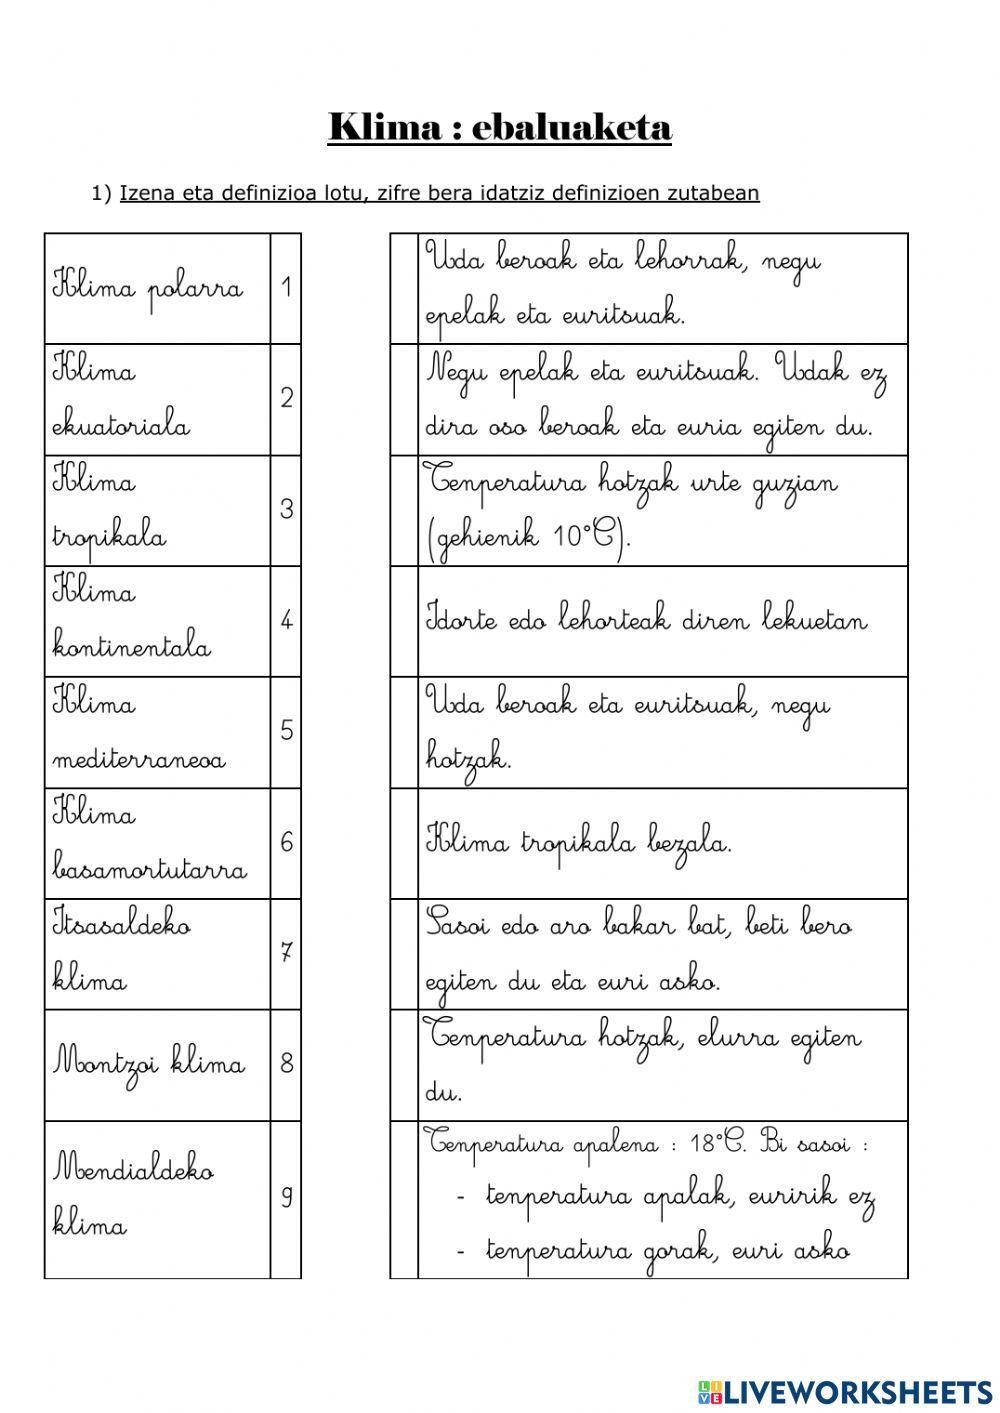 Klima : ebaluaketa
1) Izena eta definizioa lotu, zifre bera idatziz definizioen zutabean
Klima polarra
1
Klima
ekuatoriala
2
Klima
tropikala
3
Klima
kontinentala
4
Klima
mediterraneoa
5
Klima
basamortutarra
6
Itsasaldeko
klima
7
Montzoi klima
8
Mendialdeko
klima
9
Uda beroak eta lehorrak, negu
epelak eta euritsuak.
Negu epelak eta euritsuak. Udak ez
dira oso beroak eta euria egiten du.
Tenperatura hotzak urte guzian
(gehienik 10°C).
Idorte edo lehorteak diren lekuetan
Uda beroak eta euritsuak, negu
hotzak.
Klima tropikala bezala.
Sasoi edo aro bakar bat, beti bero
egiten du eta euri asko.
Tenperatura hotzak, elurra egiten
du.
Tenperatura apalena : 18°C. Bi sasoi :
- tenperatura apalak, euririk ez
- tenperatura gorak, euri asko
LIVE LIVEWORKSHEETS